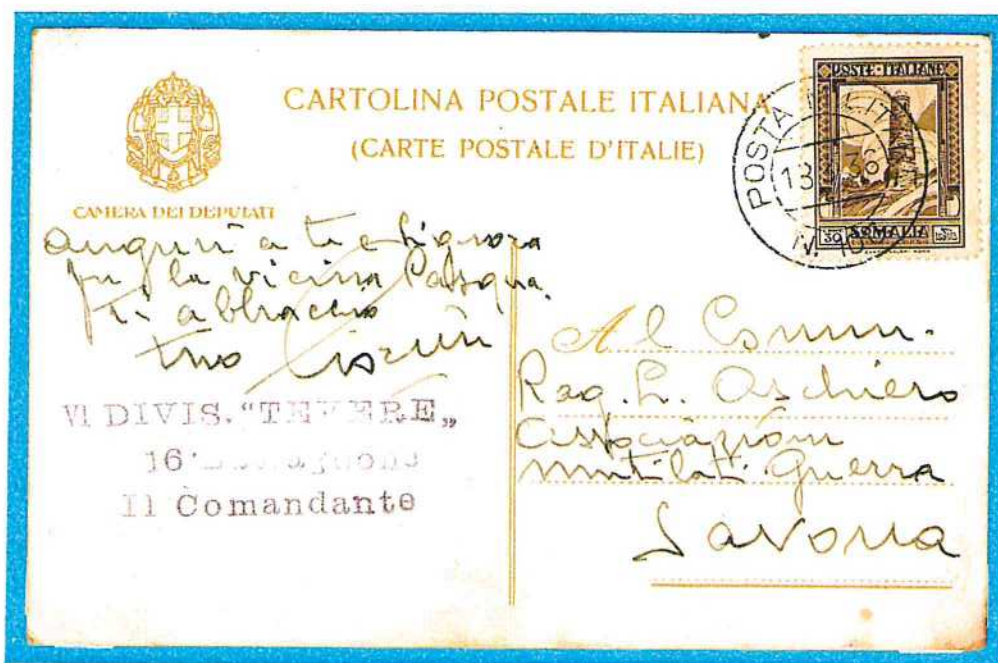 CARTOLINA POSTALE ITALIANA
(CARTE POSTALE D'ITALIE)
CAMERA DEI DEPUTATI
POSTE ITALIANE
30 SOMALIA
POSTA MILITARE
13 36
N. 10
auguri a te e Signora
per la vicina Pasqua.
Ti abbraccio
tuo
VI DIVIS. "TEVERE„
16°
Il Comandante
Al Comm.
Rag. L. Aschiero
Associazione
Mutilati Guerra
Savona